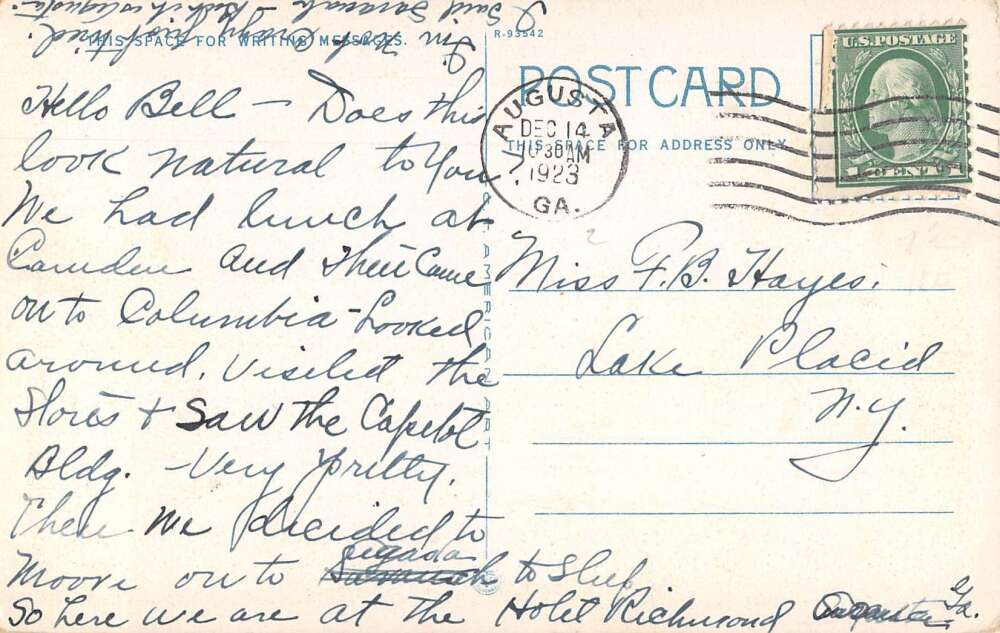 I Said Savanah - but it is Augusta.
I'm too crazy just tired.
THIS SPACE FOR WRITING MESSAGES.
R-93542
POST CARD
THIS SPACE FOR ADDRESS ONLY
U.S. POSTAGE
1 CENT 1
AUGUSTA
DEC 14
10 30 AM
1923
GA.
Hello Bell - Does this
look natural to You
We had lunch at
Camden and then Came
on to Columbia - Looked
around. Visited the
Stores + Saw the Capitol
Bldg. - Very pretty.
Then We decided to
Moove on to Savanah to Sleep
So here we are at the Hotel Richmond Augusta Ga.
Miss F. B. Hayes.
Lake Placid
N.Y.
AMERICAN ART